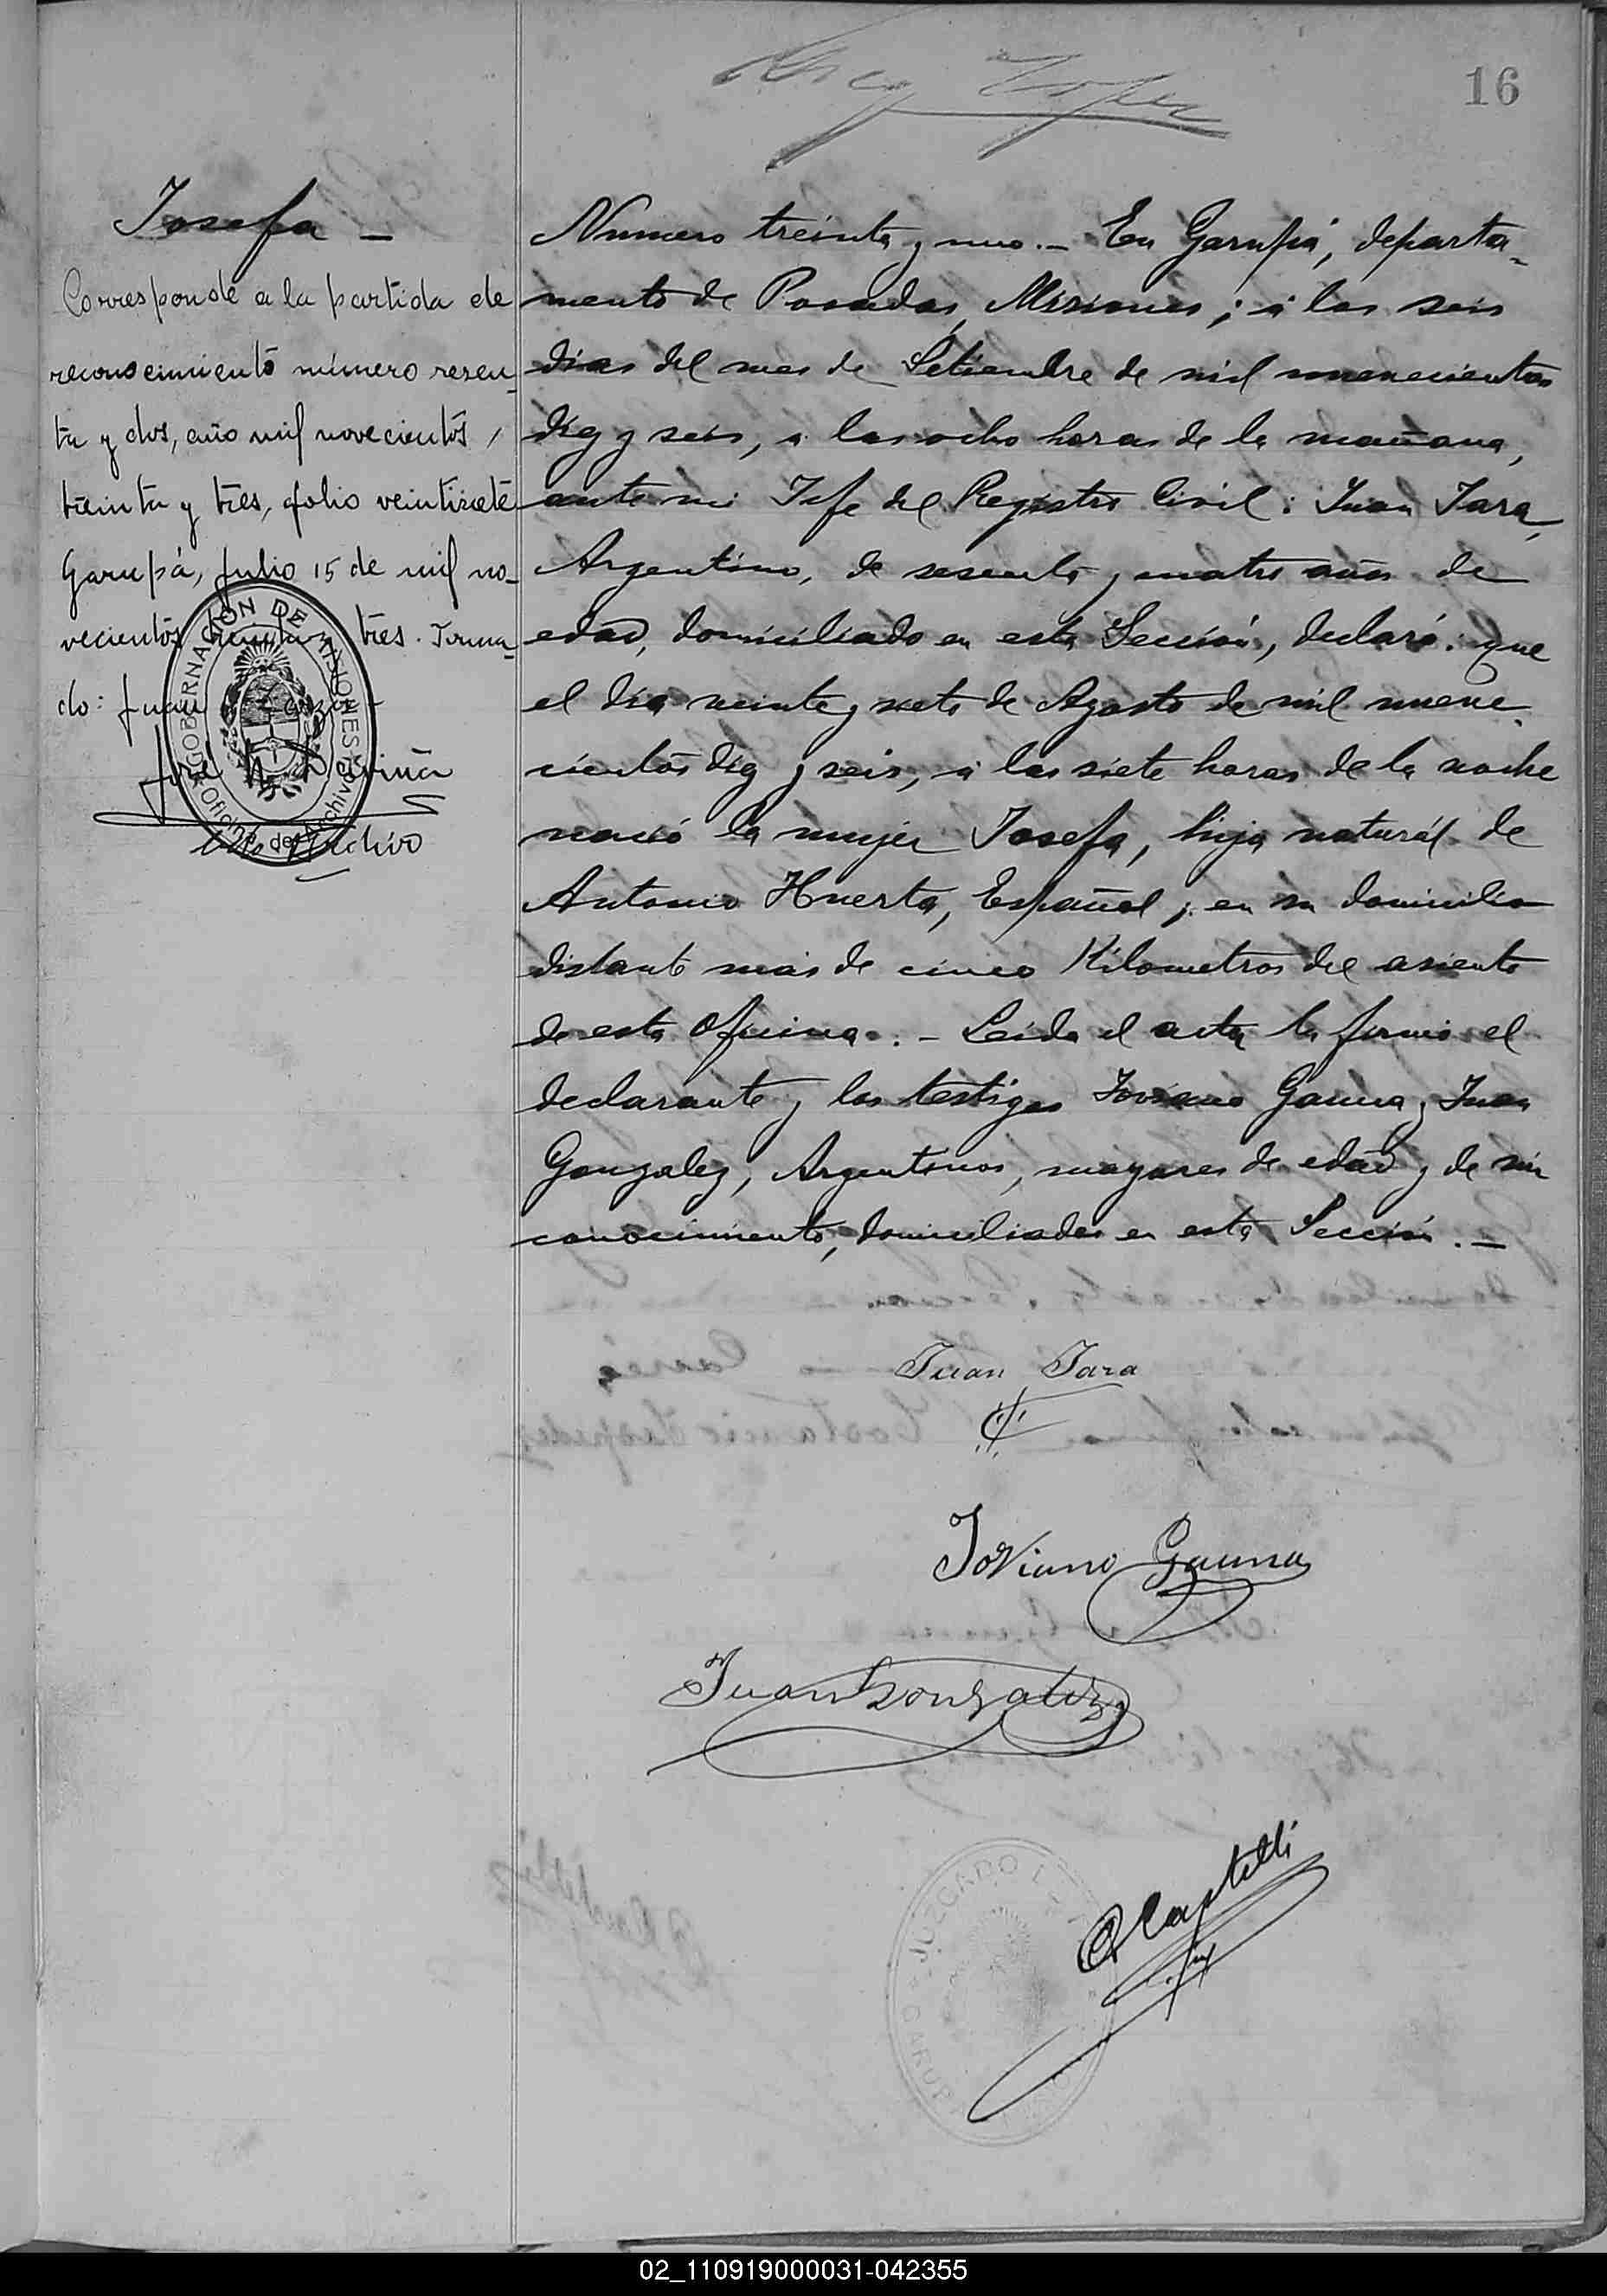 16
Josefa —
Corresponde a la partida de
reconocimiento número sesen-
ta y dos, año mil novecientos
treinta y tres, folio veintisiete
Garupá, Julio 15 de mil no-
vecientos treinta y tres. Firma-
do: Juan
Archivo
GOBERNACIÓN DE MISIONES
Oficina de Archivo
Numero treinta y uno.— En Garupá, departa-
mento de Posadas, Misiones; á los seis
dias del mes de Setiembre de mil nuevecientos
diez y seis, a las ocho horas de la mañana,
ante mi Jefe del Registro Civil: Juan Jara,
Argentino, de sesenta y cuatro años de
edad, domiciliado en esta Sección, declaró: que
el dia veinte y siete de Agosto de mil nueve-
cientos diez y seis, á las siete horas de la noche
nació la mujer Josefa, hija naturál de
Antonio Huerta, Español; en su domicilio
distante más de cinco Kilometros del asiento
de esta Oficina.— Leida el acta la firmó el
declarante y los testigos Joviano Gauna y Juan
Gonzalez, Argentinos, mayores de edad y de mi
conocimiento, domiciliados en esta Sección.—
Juan Jara
Joviano Gauna
Juan Gonzalez
Castelli
JUZGADO DE PAZ
GARUPÁ
02_110919000031-042355